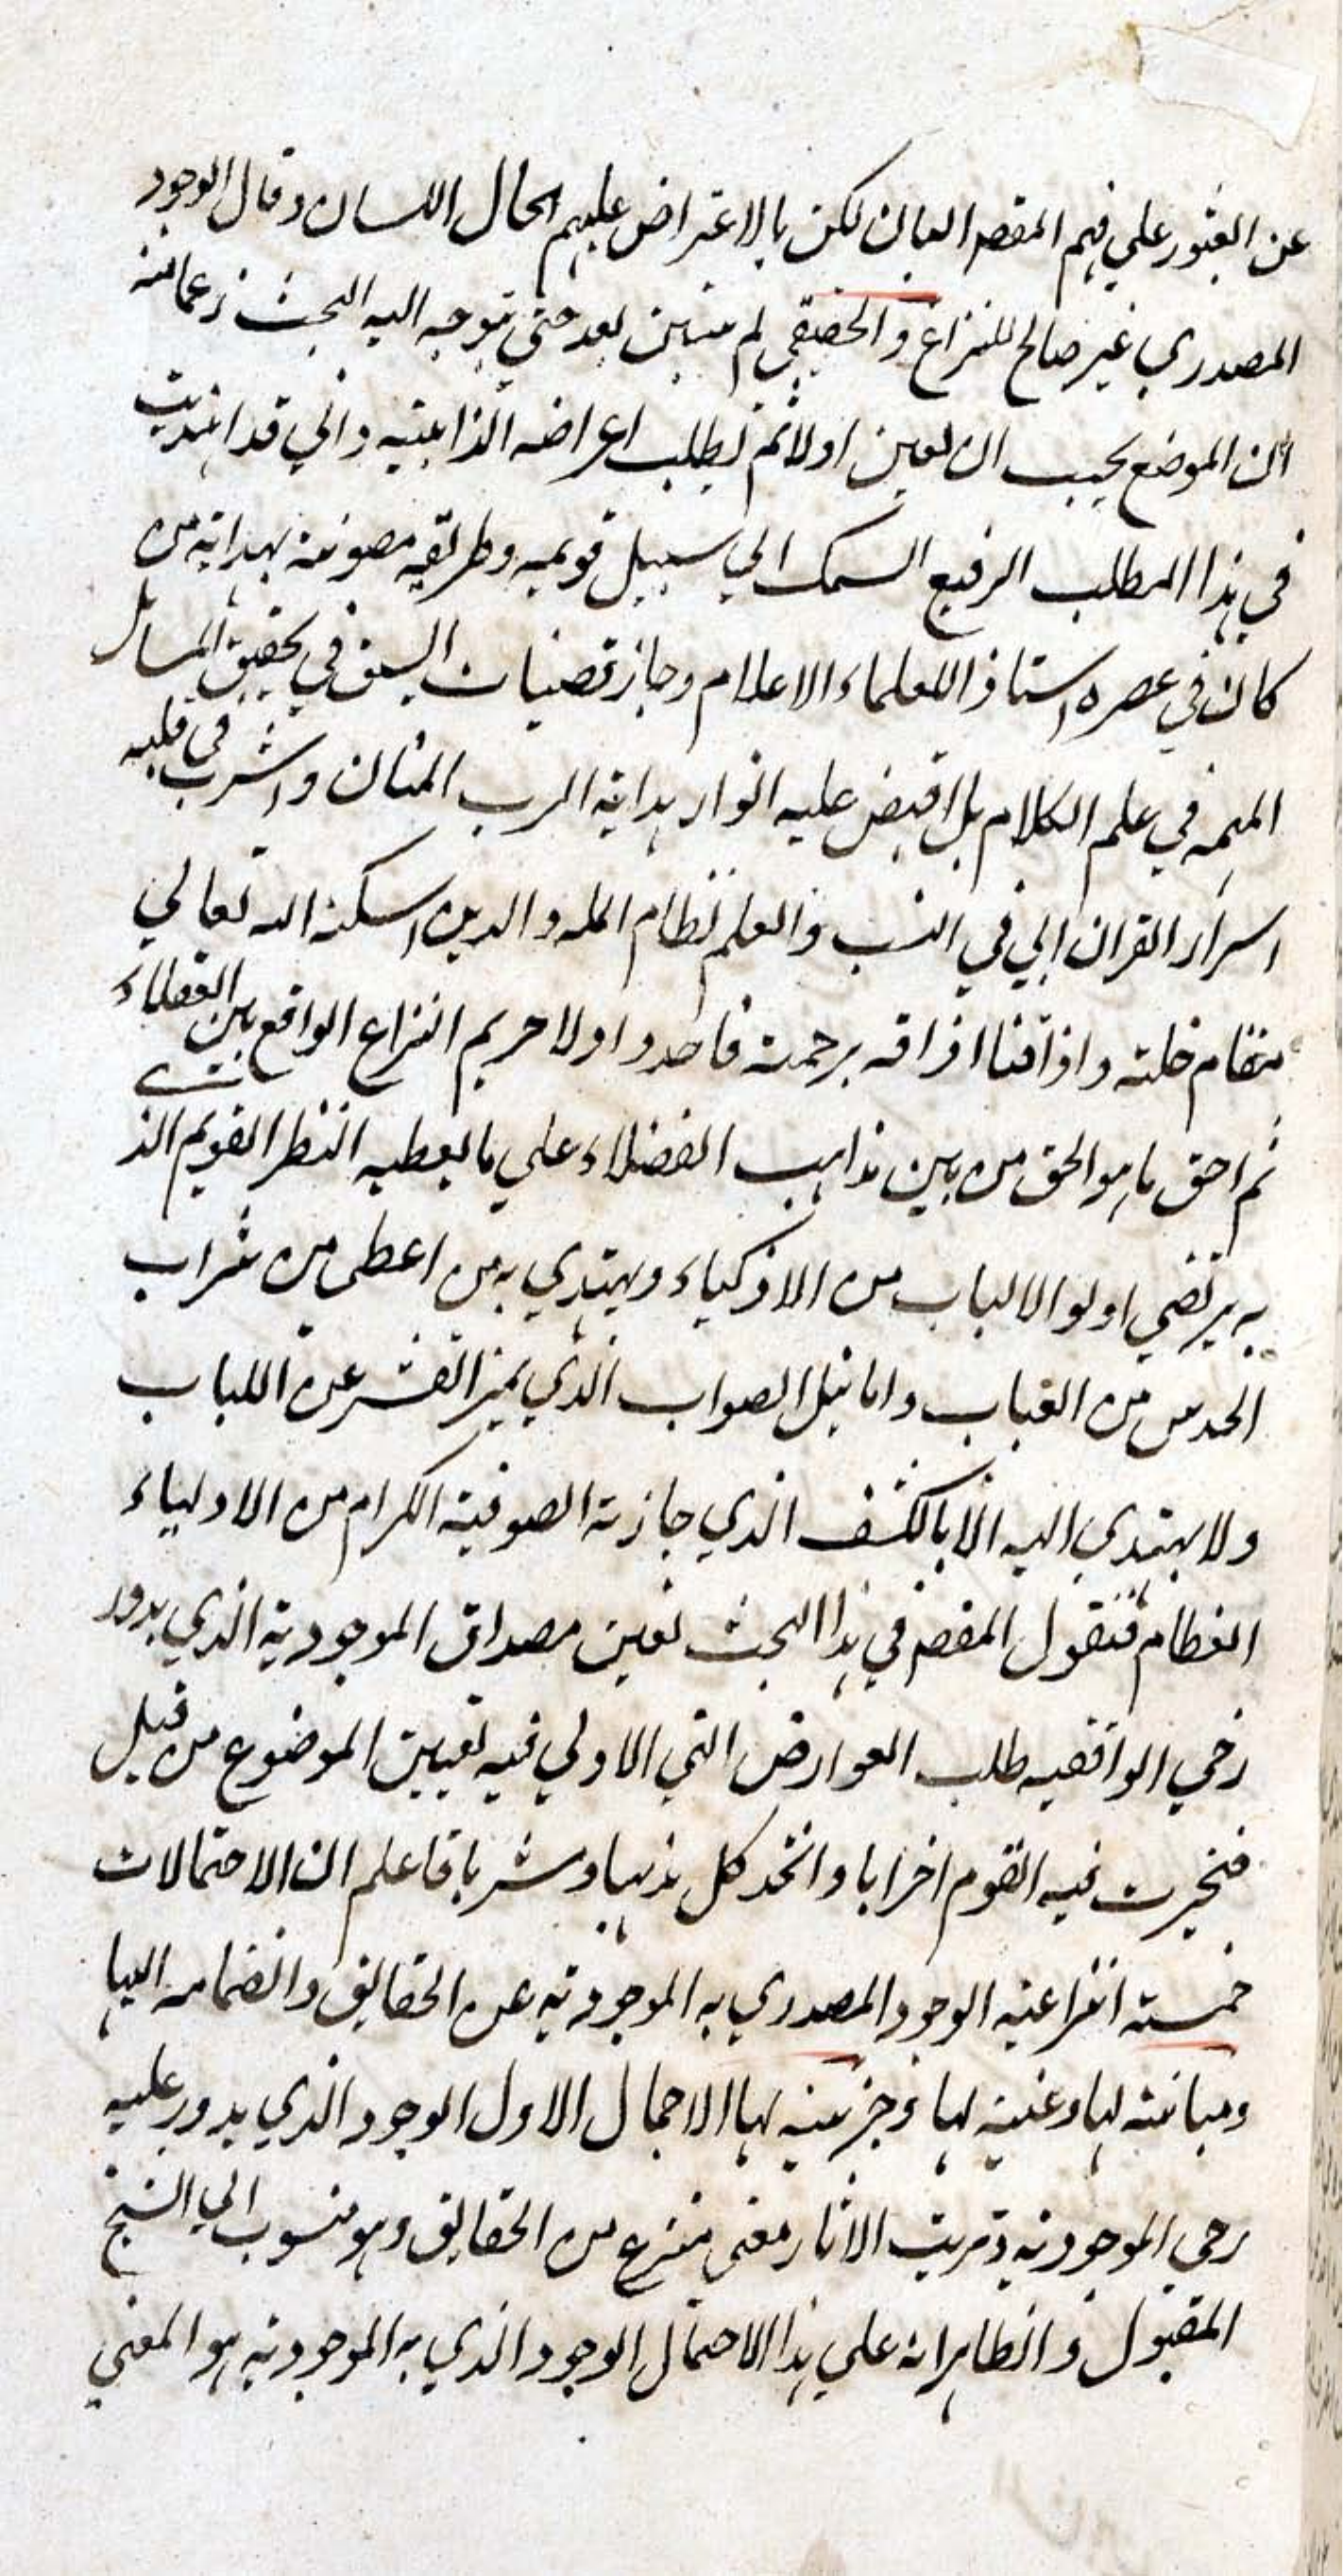 عن العثور علي فهم المقصد العان لكن بالاعتراض عليهم الحال اللسان وقال الوجود
المصدري غير صالح للنزاع والحقيقي لم متبين بعد حتي توجه اليه البحث زعما منه
ان الموضع يجب ان يعين اولا ثم يطلب اعراضه الذاتية واني قد اهتديت
في هذا المطلب الرفيع السمك الي سبيل قويمه وطريقه مصونة بهداية من
كان في عصره استاذ العلماء الاعلام وحاز قصبات السبق في تحقيق المسايل
المهمه في علم الكلام بل افيض عليه انوار هداية الرب المنان واشرب في قلبه
اسرار القران ابي في النسب والعلم نظام المله والدين اسكنه الله تعالي
مقام خلته واذاقنا اذاقه برحمته فاحدد اولا حريم النزاع الواقع بين العقلاء
ثم احق ما هو الحق من بين مذاهب الفضلاء علي ما يعطيه النظر القويم الذي
به يرتضي اولو الالباب من الاذكياء ويهتدي به من اعطي من شراب
الحدس من العباب واما نيل الصواب الذي يميز القشر عن اللباب
ولا يهتدي اليه الا بالكشف الذي حازته الصوفية الكرام من الاولياء
العظام فنقول المقصد في هذا البحث تعين مصداق الموجودية الذي يدور
رحي الواقعيه طلب العوارض التي الاولي فيه تعيين الموضوع من قبل
فتحيرت فيه القوم احزابا واتخذ كل مذهبا ومشربا فاعلم ان الاحتمالات
خمسة انتزاعية الوجود المصدري به الموجودية عن الحقايق وانضمامه اليها
ومباينته لها وعينية لها وجزئية لها الاجمال الاول الوجود الذي يدور عليه
رحي الموجودية وترتب الاثار معني منتزع من الحقايق وهو منسوب الي الشيخ
المقبول والظاهر انه علي هذا الاحتمال الوجود الذي به الموجودية هو المعني